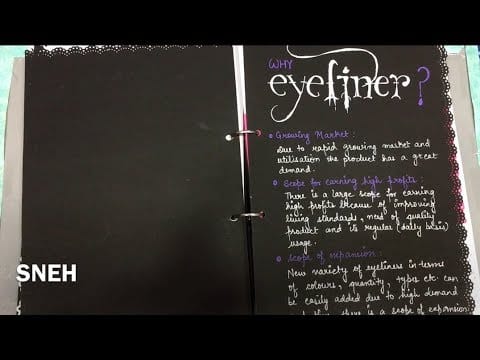 WHY
eyeliner?
Growing Market:
Due to rapid growing market and
utilisation the product has a great
demand.
Scope for earning high profits:
There is a large scope for earning
high profits because of improving
living standards, need of quality
product and its regular (daily basis)
usage.
Scope of expansion:
New variety of eyeliners in terms
of colours, quantity, types etc. can
be easily added due to high demand
there is a scope of expansion
SNEH